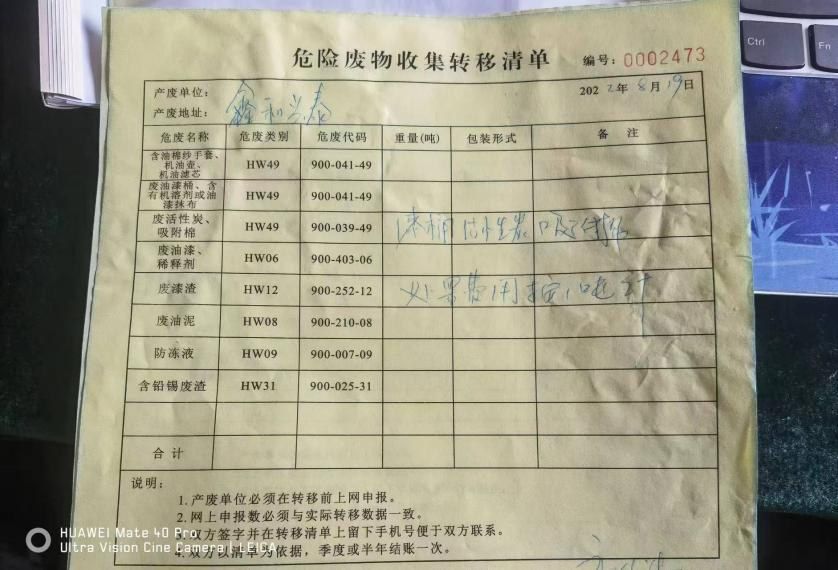 Ctrl
Fn
危险废物收集转移清单 编号：0002473
产废单位：
2022年8月19日
产废地址：
鑫和兴泰
危废名称 危废类别 危废代码 重量(吨) 包装形式 备 注
含油棉纱手套、
机油壶、
机油滤芯
HW49 900-041-49
废油漆桶、含
有机溶剂或油
漆抹布
HW49 900-041-49
废活性炭、
吸附棉
HW49 900-039-49 漆桶 活性炭 吸附棉
废油漆、
稀释剂
HW06 900-403-06
废漆渣 HW12 900-252-12 处置费用按1吨计
废油泥 HW08 900-210-08
防冻液 HW09 900-007-09
含铅锡废渣 HW31 900-025-31
合 计
说明：
1.产废单位必须在转移前上网申报。
2.网上申报数必须与实际转移数据一致。
3.双方签字并在转移清单上留下手机号便于双方联系。
4.双方以清单为依据，季度或半年结账一次。
HUAWEI Mate 40 Pro
Ultra Vision Cine Camera | LEICA